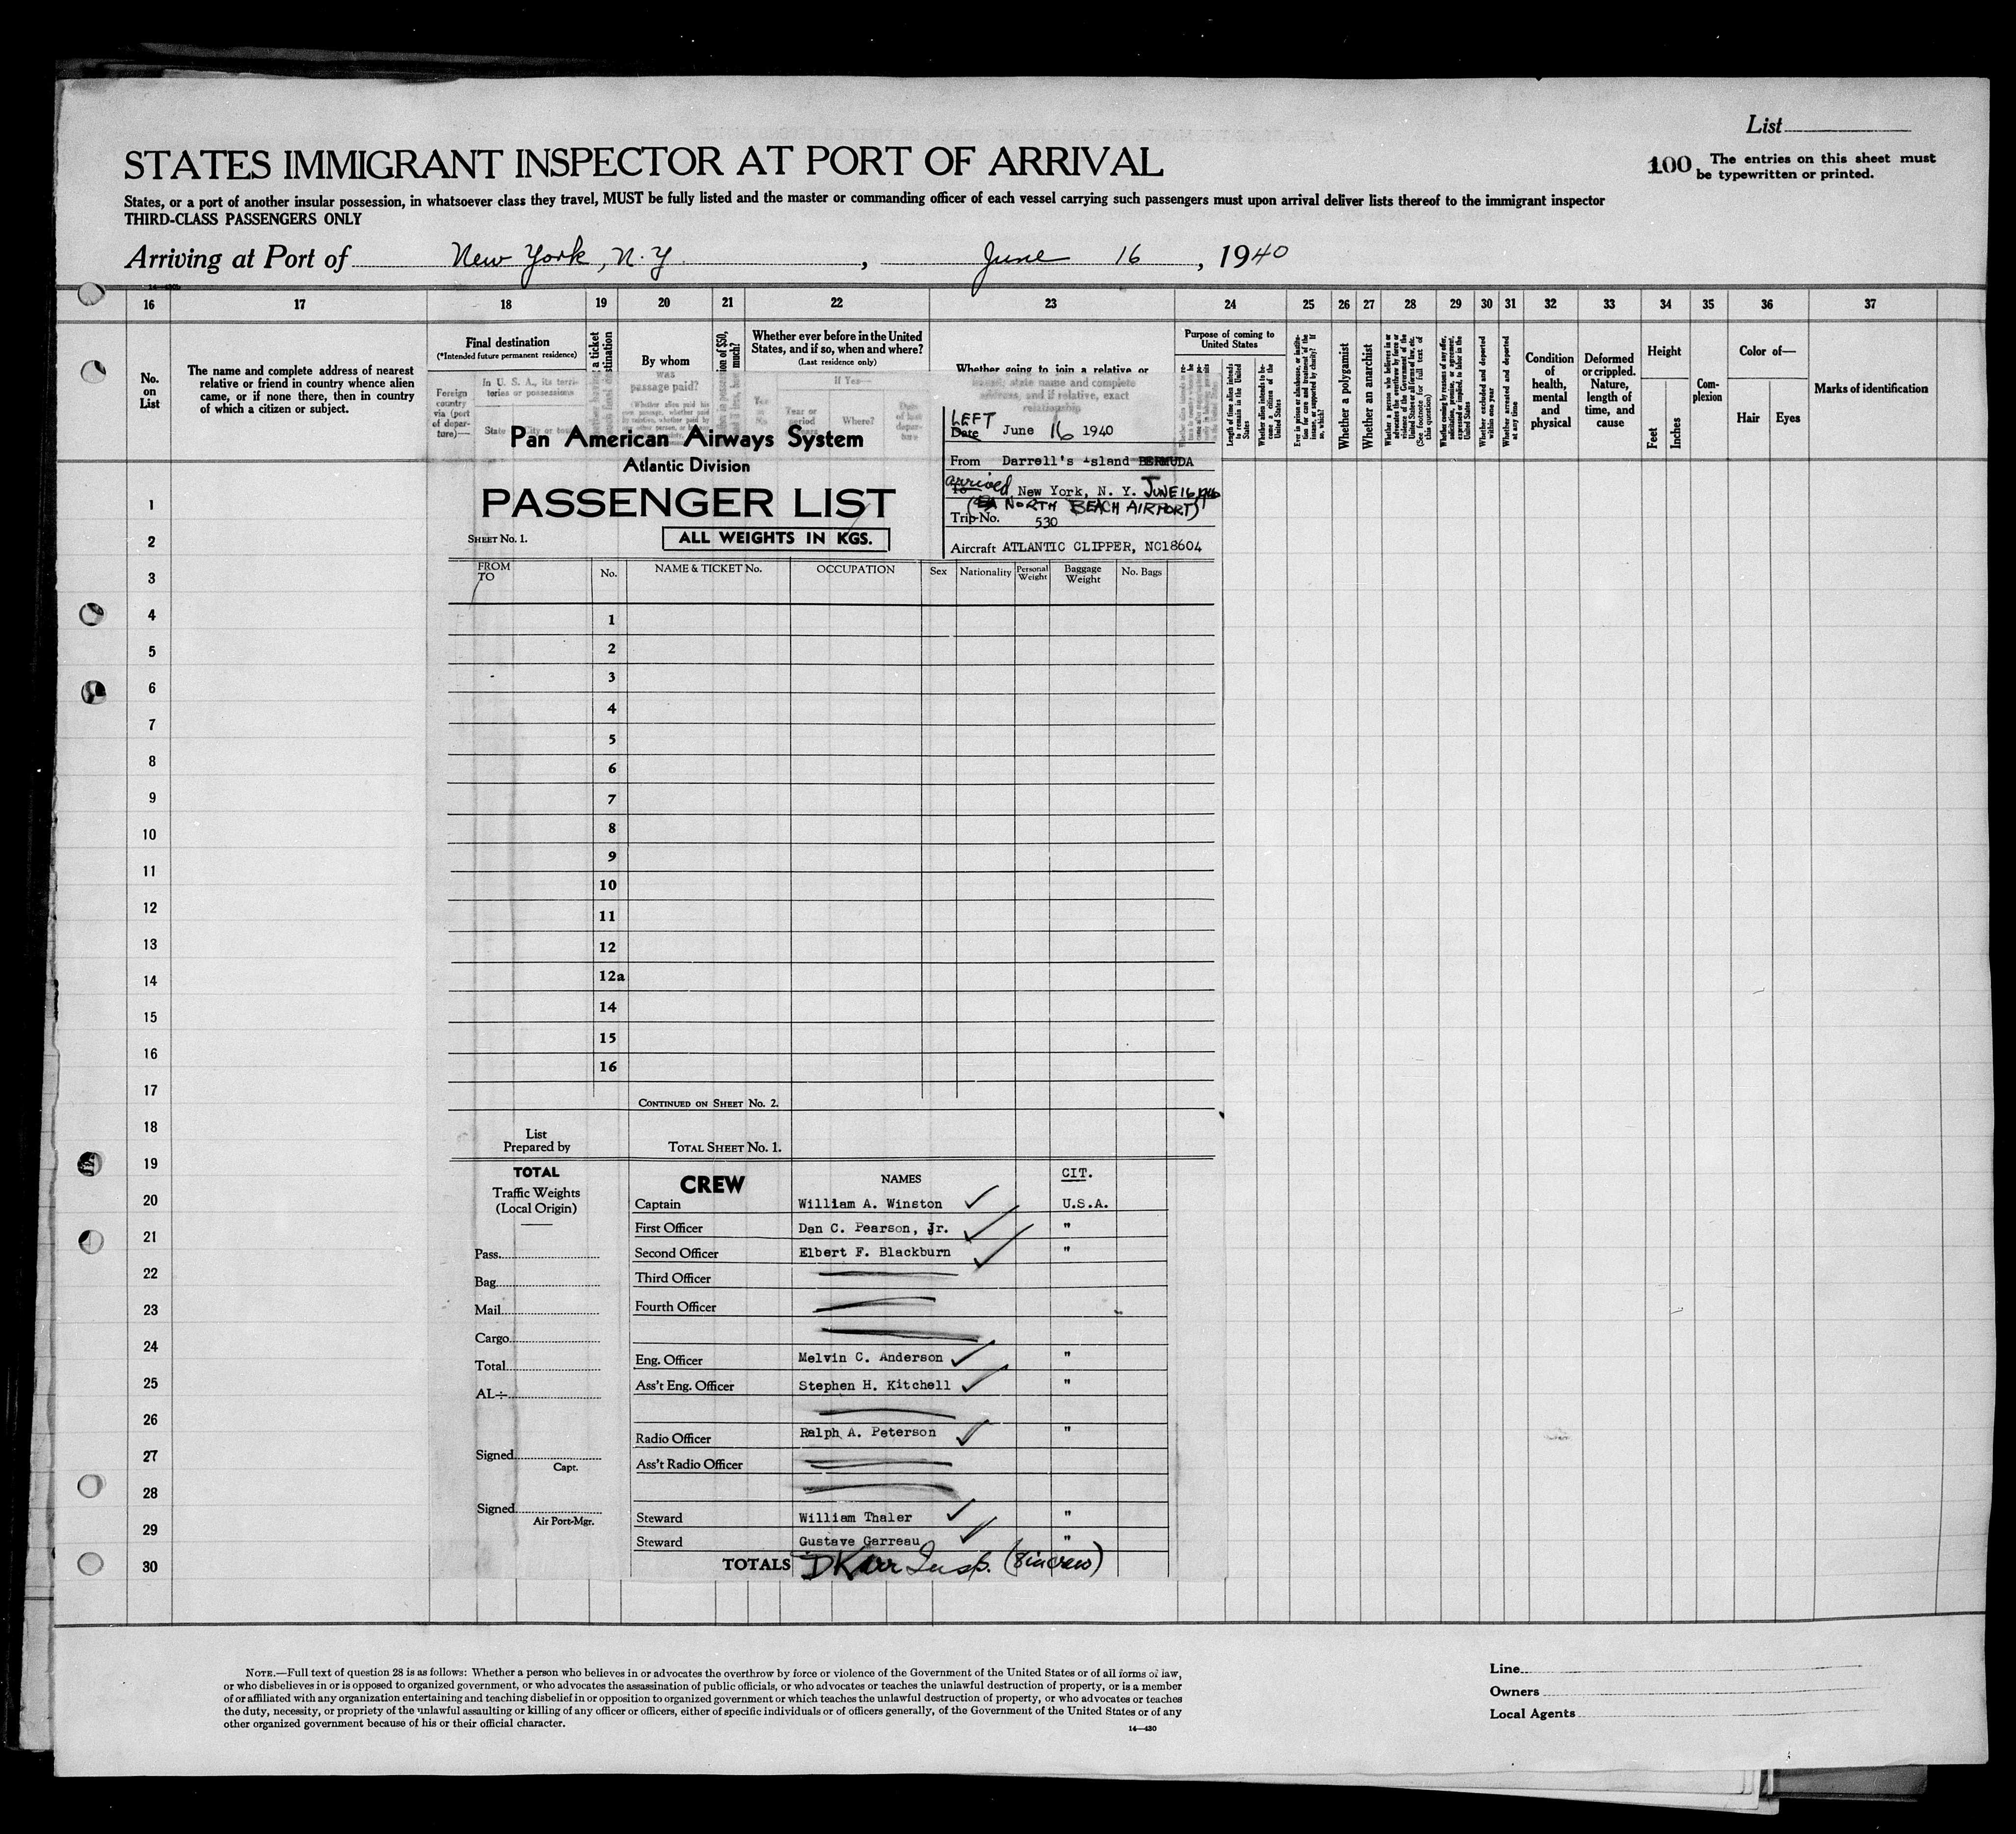 List
STATES IMMIGRANT INSPECTOR AT PORT OF ARRIVAL
100 The entries on this sheet must
be typewritten or printed.
States, or a port of another insular possession, in whatsoever class they travel, MUST be fully listed and the master or commanding officer of each vessel carrying such passengers must upon arrival deliver lists thereof to the immigrant inspector
THIRD-CLASS PASSENGERS ONLY
Arriving at Port of New York, N.Y. , June 16 , 1940
16 17 18 19 20 21 22 23 24 25 26 27 28 29 30 31 32 33 34 35 36 37
No.
on
List
The name and complete address of nearest
relative or friend in country whence alien
came, or if none there, then in country
of which a citizen or subject.
Final destination
(*Intended future permanent residence)
Foreign
country
via (port
of depar-
ture)—
In U. S. A., its terri-
tories or possessions
State City or
By whom
was
passage paid?
Whether ever before in the United
States, and if so, when and where?
(Last residence only)
If Yes—
Yes
or
No
Year or
period
Where?
Whether going to join a relative or
friend; state name and complete
address, and if relative, exact
relationship
Purpose of coming to
United States
Length of time alien intends
to remain in the United
States
Whether alien intends to be-
come a citizen of the
United States
Whether a polygamist
Whether an anarchist
Whether excluded and deported
within one year
Whether arrested and deported
at any time
Condition
of
health,
mental
and
physical
Deformed
or crippled.
Nature,
length of
time, and
cause
Height
Feet
Inches
Com-
plexion
Color of—
Hair Eyes
Marks of identification
Pan American Airways System
Atlantic Division
PASSENGER LIST
SHEET No. 1.
ALL WEIGHTS IN KGS.
LEFT
Date June 16 1940
From Darrell's Island BERMUDA
arrived
To New York, N. Y. JUNE 16 1940
NORTH BEACH AIRPORT)
Trip No. 530
Aircraft ATLANTIC CLIPPER, NC18604
FROM
TO
No. NAME & TICKET No. OCCUPATION Sex Nationality Personal
Weight Baggage
Weight No. Bags
1
2
3
4
5
6
7
8
9
10
11
12
12a
14
15
16
CONTINUED ON SHEET No. 2.
List
Prepared by
TOTAL SHEET No. 1.
TOTAL
Traffic Weights
(Local Origin)
Pass.
Bag
Mail
Cargo
Total
AL÷
Signed
Capt.
Signed
Air Port-Mgr.
CREW NAMES CIT.
Captain William A. Winston ✓ U.S.A.
First Officer Dan C. Pearson, Jr. ✓ "
Second Officer Elbert F. Blackburn ✓ "
Third Officer
Fourth Officer
Eng. Officer Melvin C. Anderson ✓ "
Ass't Eng. Officer Stephen H. Kitchell ✓ "
Radio Officer Ralph A. Peterson ✓ "
Ass't Radio Officer
Steward William Thaler ✓ "
Steward Gustave Garreau ✓ "
TOTALS D Karr Insp. (8 in crew)
1
2
3
4
5
6
7
8
9
10
11
12
13
14
15
16
17
18
19
20
21
22
23
24
25
26
27
28
29
30
NOTE.—Full text of question 28 is as follows: Whether a person who believes in or advocates the overthrow by force or violence of the Government of the United States or of all forms of law,
or who disbelieves in or is opposed to organized government, or who advocates the assassination of public officials, or who advocates or teaches the unlawful destruction of property, or is a member
of or affiliated with any organization entertaining and teaching disbelief in or opposition to organized government or which teaches the unlawful destruction of property, or who advocates or teaches
the duty, necessity, or propriety of the unlawful assaulting or killing of any officer or officers, either of specific individuals or of officers generally, of the Government of the United States or of any
other organized government because of his or their official character.
14—430
Line
Owners
Local Agents